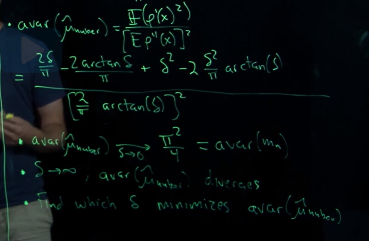 • avar(μ̂_Huber) = 𝔼(ρ'(x)²) / [E ρ''(x)]²
= 2δ/π − 2 arctan δ/π + δ² − 2 δ²/π arctan(δ) / [2/π arctan(δ)]²
• avar(μ̂_Huber) →_{δ→0} π²/4 = avar(m_n)
• δ→∞, avar(μ̂_Huber) diverges
• Find which δ minimizes avar(μ̂_Huber)